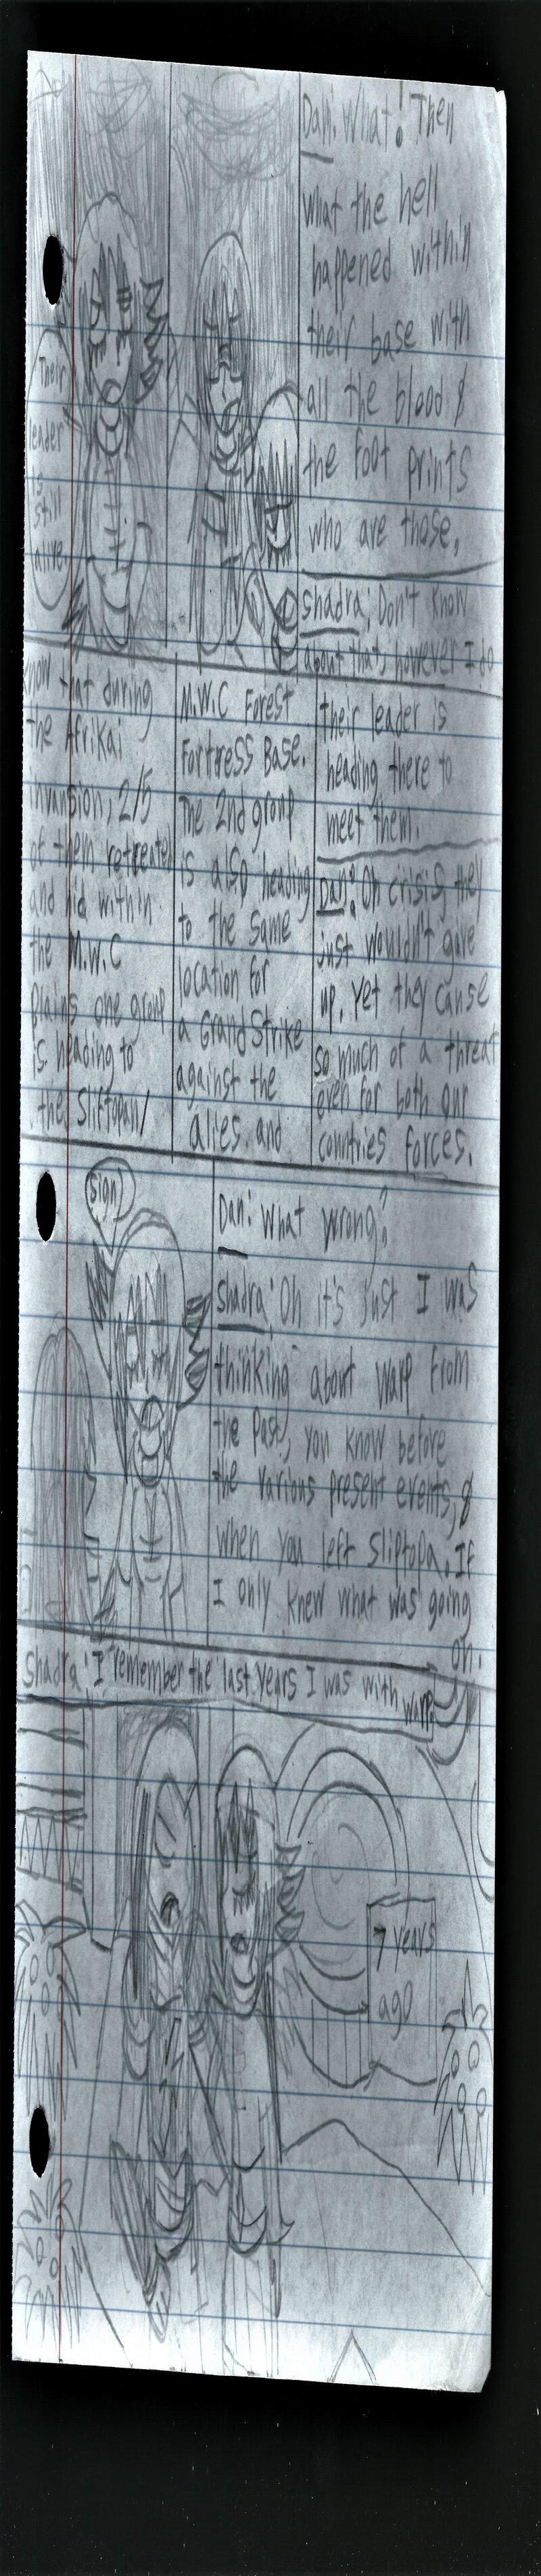 Their
leader
is
still
alive.
Dan: What! Then
what the hell
happened within
their base with
all the blood &
the foot prints
who are those.
Shadra: Don't know
about that, however I do
know that during
the Afrikai
invansion, 2/5
of them retreated
and hid within
the M.W.C
Plains one group
is heading to
the Sliftopan/
M.W.C Forest
Fortress Base.
The 2nd group
is also heading
to the same
location for
a Grand Strike
against the
alies. and
their leader is
heading there to
meet them.
Dan: Oh crisis, they
just wouldn't gave
up. Yet they canse
so much of a threat
even for both our
countries forces.
(Sign)
Dan: What wrong?
Shadra: Oh it's just I was
thinking about Warp from
the Past, you know before
the various present events, &
when you left Sliptopa. If
I only knew what was going
on.
Shadra: I remember the last years I was with Warp.
7 years
ago